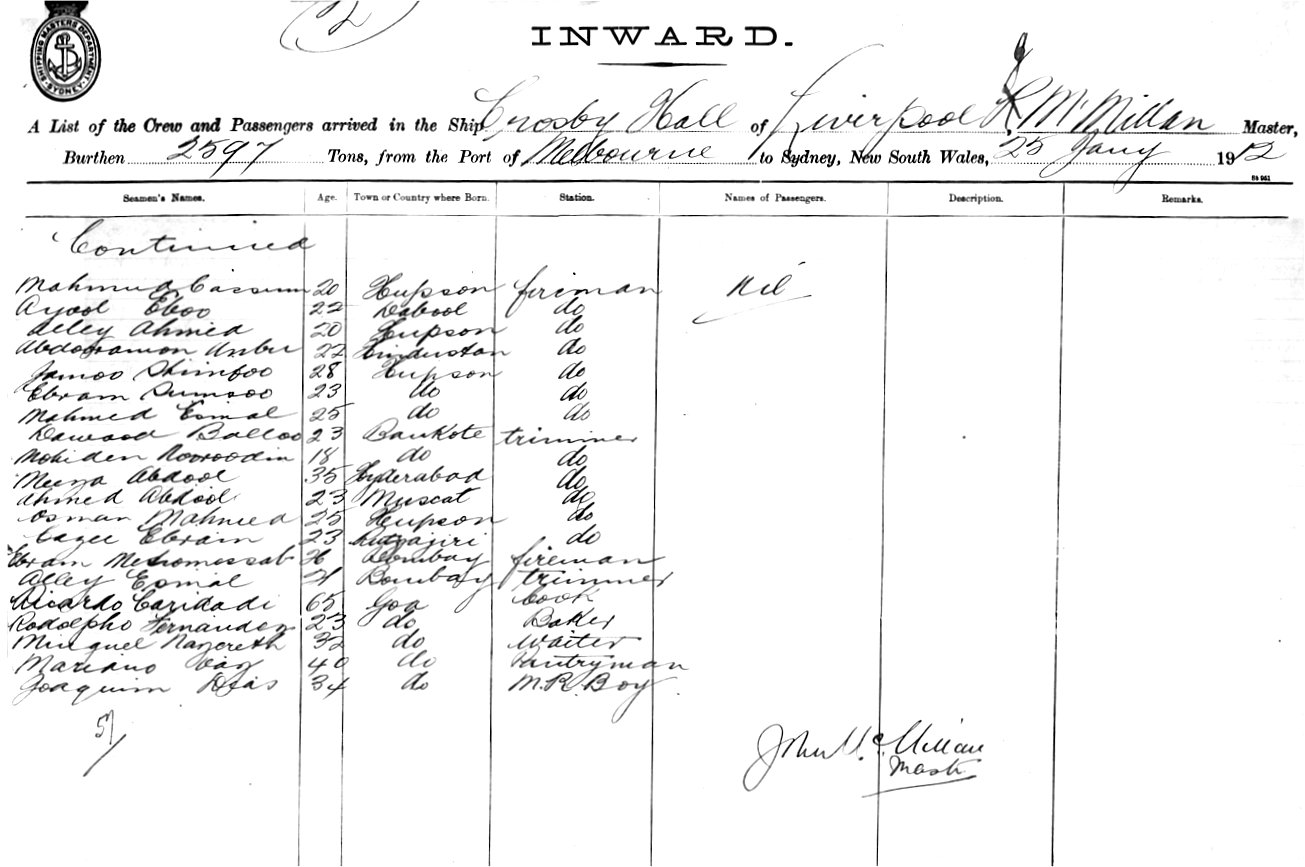 2
SHIPPING MASTERS DEPARTMENT SYDNEY
INWARD.
A List of the Crew and Passengers arrived in the Ship Crosby Hall of Liverpool, McMillan Master,
Burthen 2597 Tons, from the Port of Melbourne to Sydney, New South Wales, 25 Jany 1912
St 961
Seamen's Names. Age. Town or Country where Born. Station. Names of Passengers. Description. Remarks.
Continued
Mahmud Cassum 20 Hupson fireman Nil
Ayool Eboo 22 Dabool do
Alley Ahmed 20 Hupson do
22 Hindustan do
Jamoo 28 Hupson do
Ebram Sumsoo 23 do do
Mahmed Esmal 25 do do
Dawood Balloo 23 Bankote trimmer
Mohiden Nooroodin 18 do do
Abdool 35 Hyderabad do
Ahmed Abdool 23 Muscat do
Osman Mahmed 25 Hupson do
Ebram 23 do
Ebram Bombay fireman
Alley Esmal Bombay trimmer
Ricardo Caridadi 65 Goa Cook
Rodolpho Fernandez 23 do Baker
Minguel Nazereth 32 do Waiter
Mariano Vaz 40 do Pantryman
Joaquim Dias 34 do M.R. Boy
John McMillan
Master